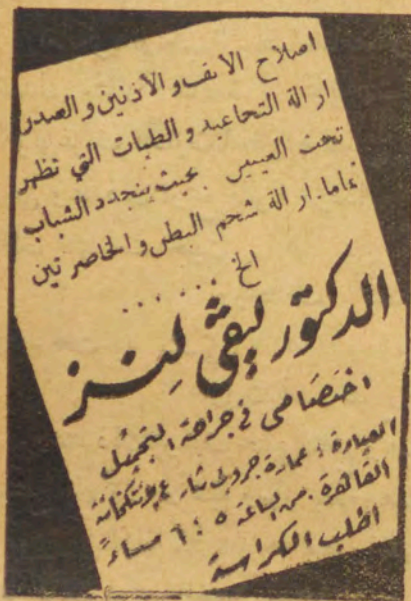 اصلاح الانف والاذنين والصدر
ازالة التجاعيد والطيات التي تظهر
تحت العينين بحيث يتجدد الشباب
تماما. ازالة شحم البطن والخاصرتين
الخ . . . . . .
الدكتور ليڤي لنز
اختصاصى في جراحة التجميل
العيادة : عمارة جروبى شارع
القاهرة . من الساعة ٥ : ٦ مساءً
اطلب الكراسة